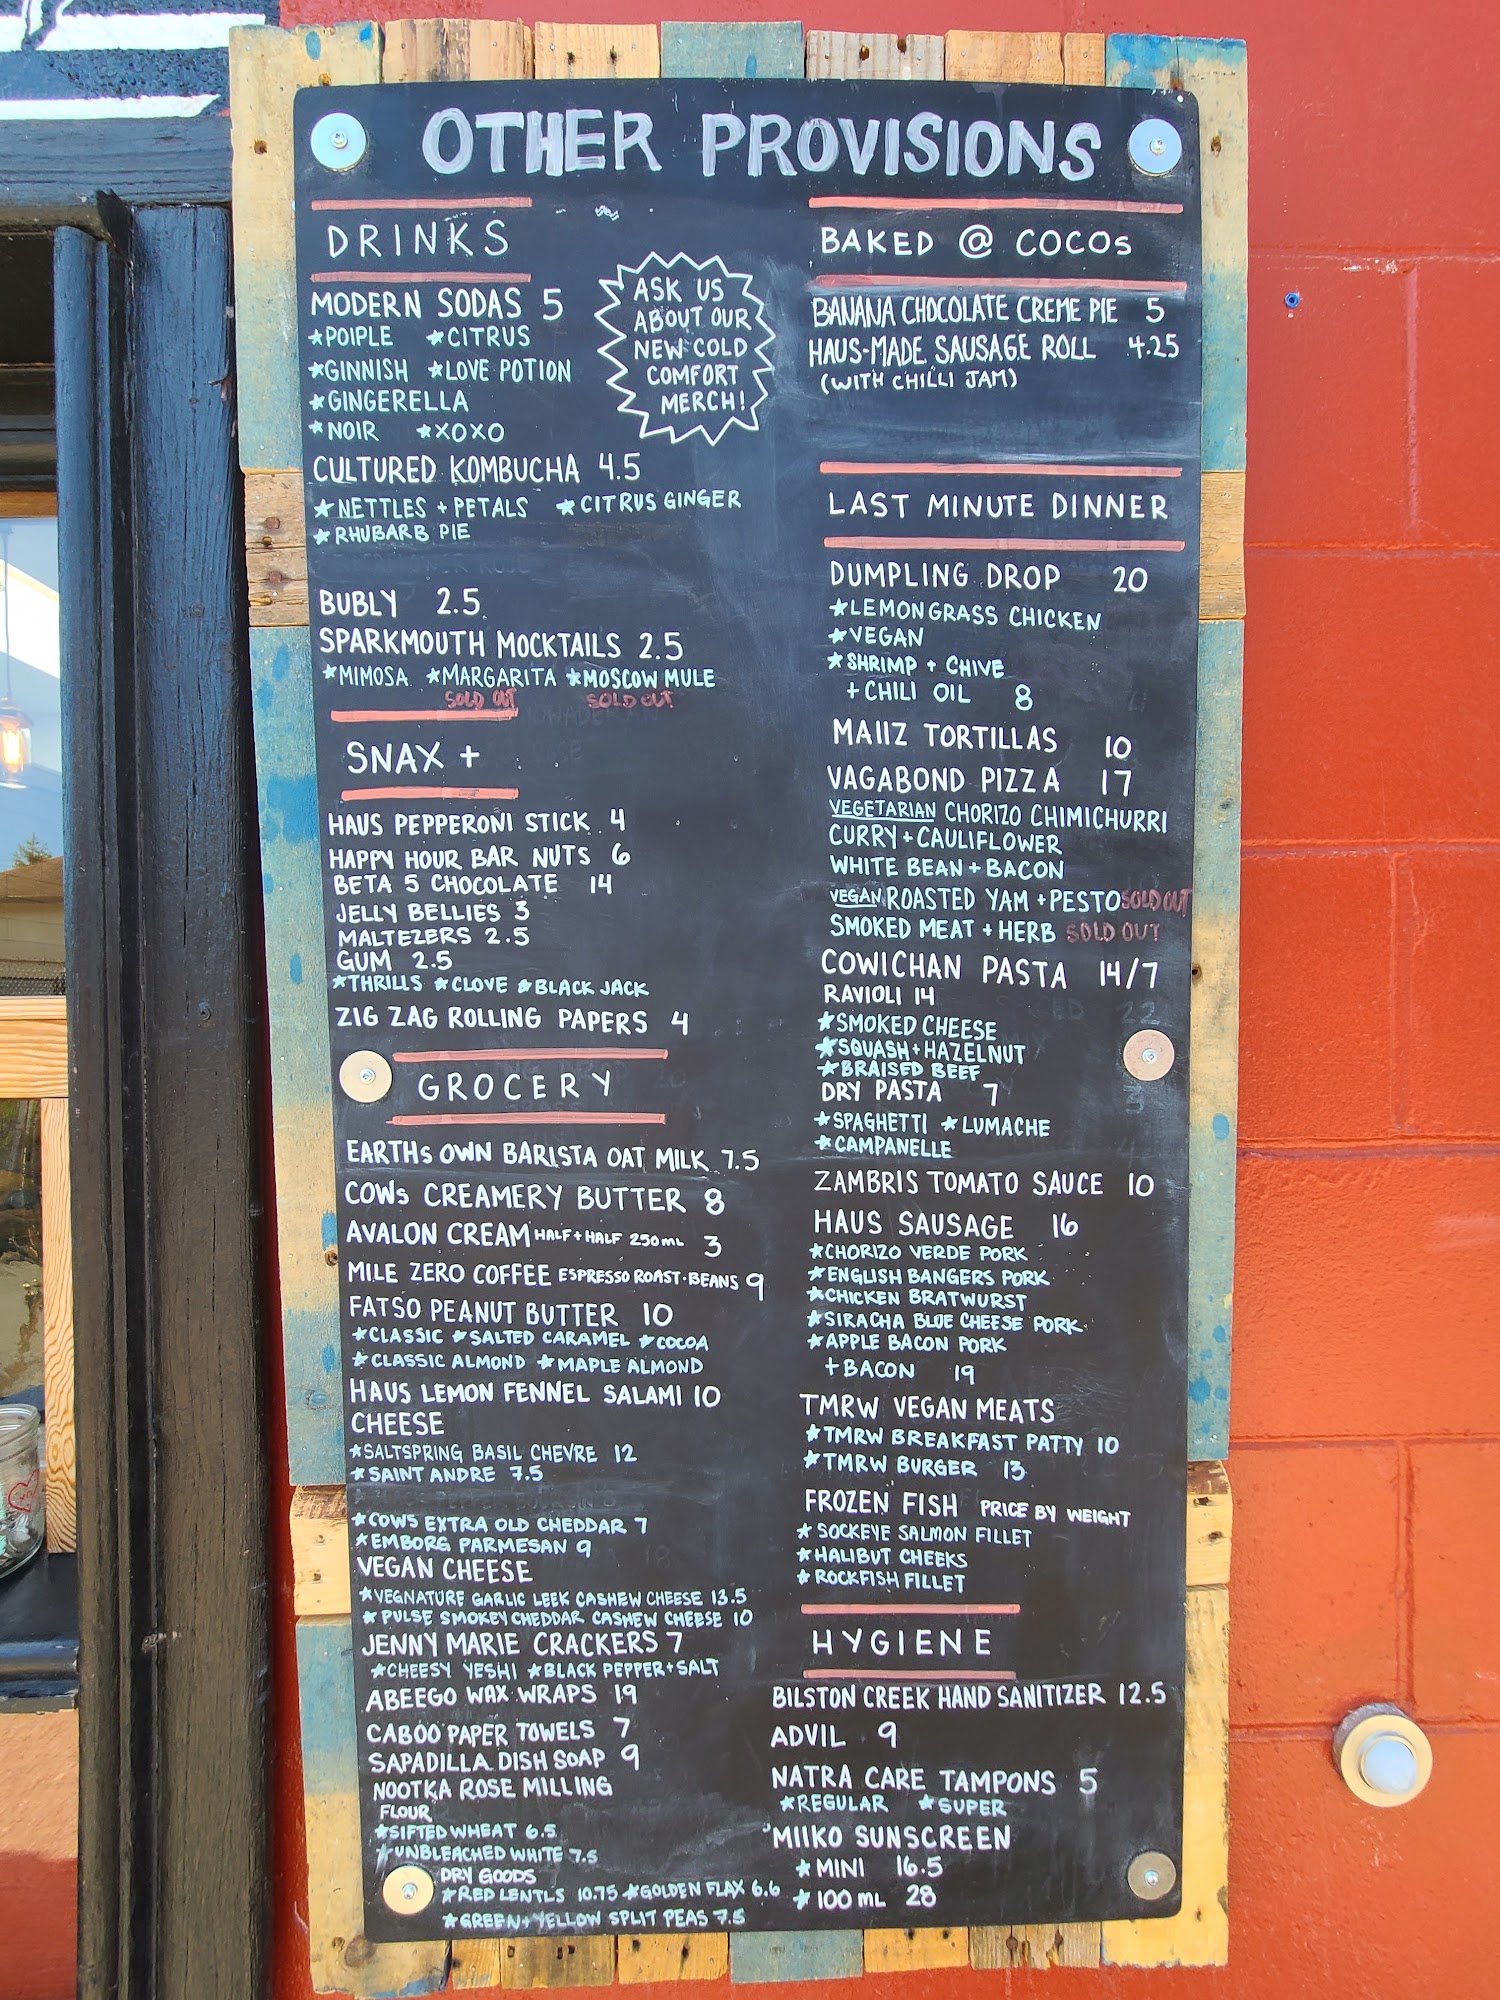 OTHER PROVISIONS
DRINKS
MODERN SODAS 5
★POIPLE ★CITRUS
★GINNISH ★LOVE POTION
★GINGERELLA
★NOIR ★XOXO
CULTURED KOMBUCHA 4.5
★NETTLES + PETALS ★CITRUS GINGER
★RHUBARB PIE
BUBLY 2.5
SPARKMOUTH MOCKTAILS 2.5
★MIMOSA ★MARGARITA ★MOSCOW MULE
SOLD OUT SOLD OUT
ASK US
ABOUT OUR
NEW COLD
COMFORT
MERCH!
SNAX +
HAUS PEPPERONI STICK 4
HAPPY HOUR BAR NUTS 6
BETA 5 CHOCOLATE 14
JELLY BELLIES 3
MALTEZERS 2.5
GUM 2.5
★THRILLS ★CLOVE ★BLACK JACK
ZIG ZAG ROLLING PAPERS 4
GROCERY
EARTHS OWN BARISTA OAT MILK 7.5
COWS CREAMERY BUTTER 8
AVALON CREAM HALF+HALF 250ML 3
MILE ZERO COFFEE ESPRESSO ROAST·BEANS 9
FATSO PEANUT BUTTER 10
★CLASSIC ★SALTED CARAMEL ★COCOA
★CLASSIC ALMOND ★MAPLE ALMOND
HAUS LEMON FENNEL SALAMI 10
CHEESE
★SALTSPRING BASIL CHEVRE 12
★SAINT ANDRE 7.5
★COWS EXTRA OLD CHEDDAR 7
★EMBORG PARMESAN 9
VEGAN CHEESE
★VEGNATURE GARLIC LEEK CASHEW CHEESE 13.5
★PULSE SMOKEY CHEDDAR CASHEW CHEESE 10
JENNY MARIE CRACKERS 7
★CHEESY YESHI ★BLACK PEPPER+SALT
ABEEGO WAX WRAPS 19
CABOO PAPER TOWELS 7
SAPADILLA DISH SOAP 9
NOOTKA ROSE MILLING
FLOUR
★SIFTED WHEAT 6.5
★UNBLEACHED WHITE 7.5
DRY GOODS
★RED LENTLS 10.75 ★GOLDEN FLAX 6.6
★GREEN+YELLOW SPLIT PEAS 7.5
BAKED @ COCOS
BANANA CHOCOLATE CREME PIE 5
HAUS-MADE SAUSAGE ROLL 4.25
(WITH CHILLI JAM)
LAST MINUTE DINNER
DUMPLING DROP 20
★LEMONGRASS CHICKEN
★VEGAN
★SHRIMP + CHIVE
+ CHILI OIL 8
MAIIZ TORTILLAS 10
VAGABOND PIZZA 17
VEGETARIAN CHORIZO CHIMICHURRI
CURRY+CAULIFLOWER
WHITE BEAN + BACON
VEGAN ROASTED YAM + PESTO SOLD OUT
SMOKED MEAT + HERB SOLD OUT
COWICHAN PASTA 14/7
RAVIOLI 14
★SMOKED CHEESE
★SQUASH+HAZELNUT
★BRAISED BEEF
DRY PASTA 7
★SPAGHETTI ★LUMACHE
★CAMPANELLE
ZAMBRIS TOMATO SAUCE 10
HAUS SAUSAGE 16
★CHORIZO VERDE PORK
★ENGLISH BANGERS PORK
★CHICKEN BRATWURST
★SIRACHA BLUE CHEESE PORK
★APPLE BACON PORK
+BACON 19
TMRW VEGAN MEATS
★TMRW BREAKFAST PATTY 10
★TMRW BURGER 13
FROZEN FISH PRICE BY WEIGHT
★SOCKEYE SALMON FILLET
★HALIBUT CHEEKS
★ROCKFISH FILLET
HYGIENE
BILSTON CREEK HAND SANITIZER 12.5
ADVIL 9
NATRA CARE TAMPONS 5
★REGULAR ★SUPER
MIIKO SUNSCREEN
★MINI 16.5
★100 ML 28